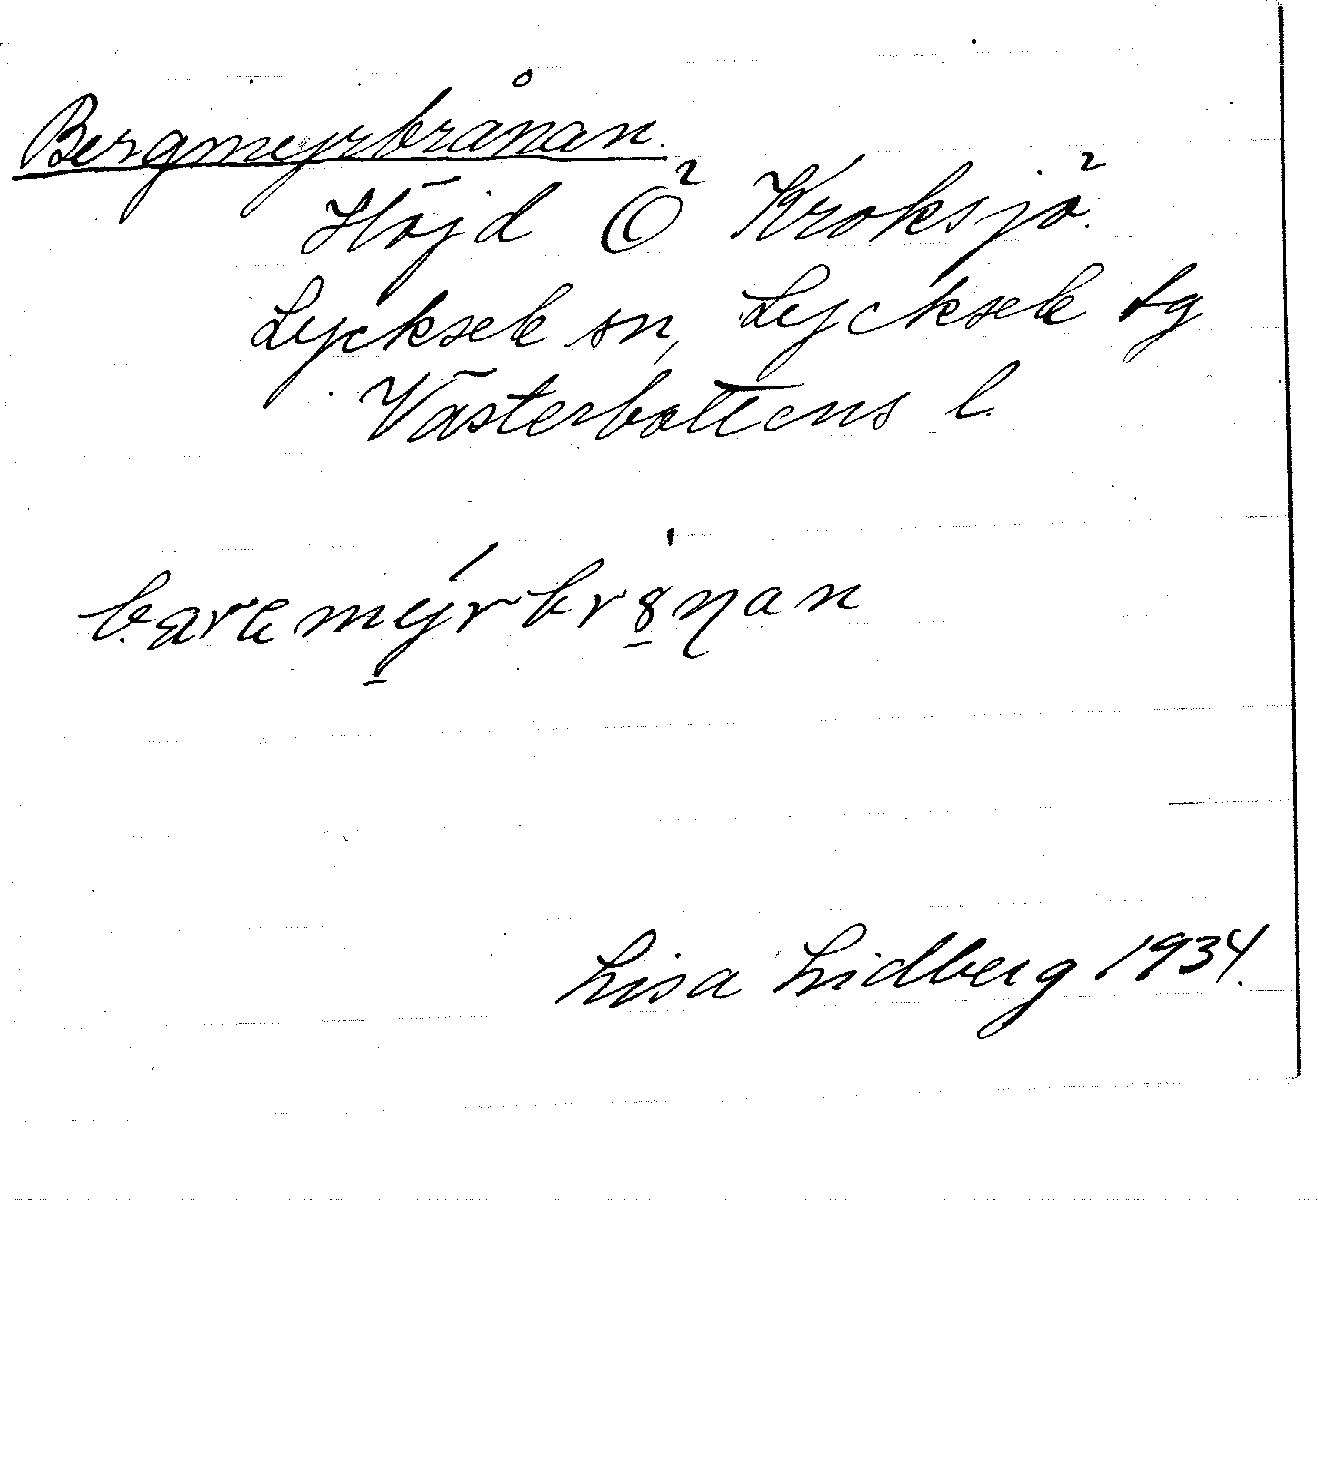 Bergmyrbrånan.
Höjd Ö Kroksjö.
Lycksele sn, Lycksele tg
Västerbottens l.
Lisa Lidberg 1934.